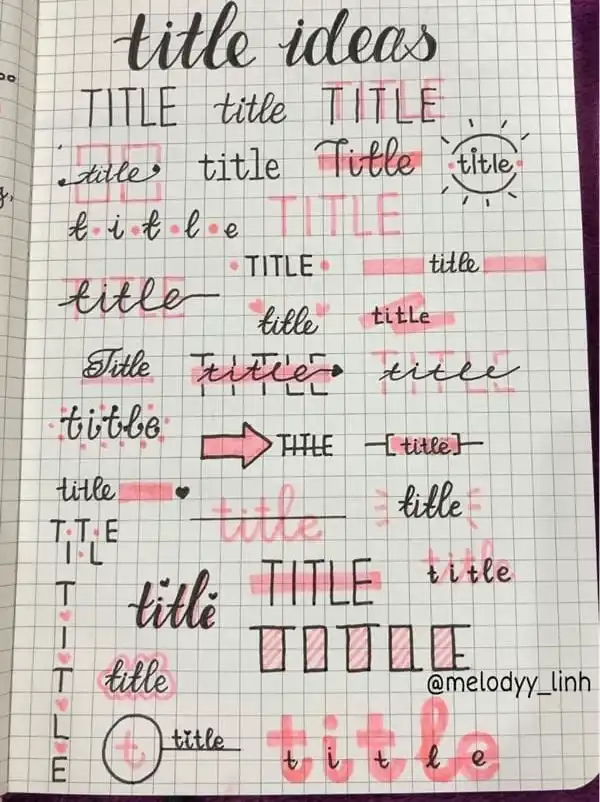 title ideas
TITLE title TITLE
title title Title title
t i t l e TITLE
TITLE title
title title title
Title title title
title TITLE [title]
title title title
TITLE
title TITLE title
TITLE
title
@melodyy_linh
TITLE
t title title